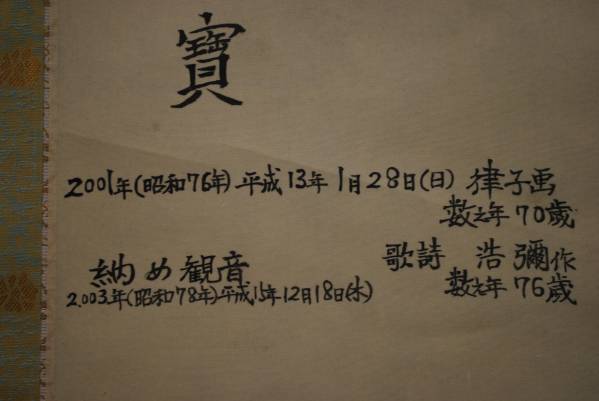 寶
2001年(昭和76年)平成13年1月28日(日) 律子画
数え年70歳
納め観音 歌詩 浩彌作
2,003年(昭和78年)平成15年12月18日(木) 数え年76歳